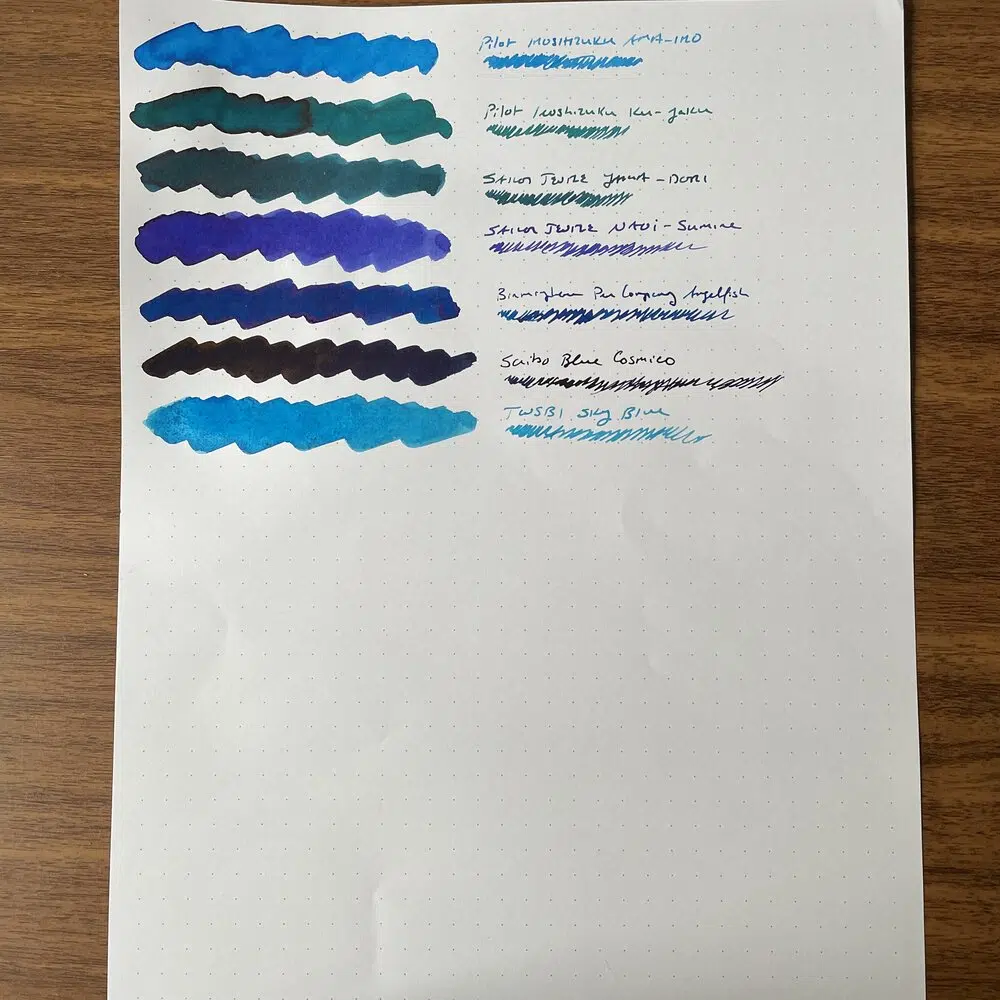 Pilot Iroshizuku Ama-iro
Pilot Iroshizuku Ku-jaku
Sailor Jentle Yama-Dori
Sailor Jentle
Birmingham Pen Company Angelfish
Blue Cosmico
TWSBI Sky Blue